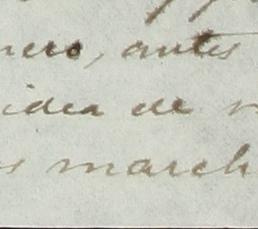 nero, antes
idea de
march